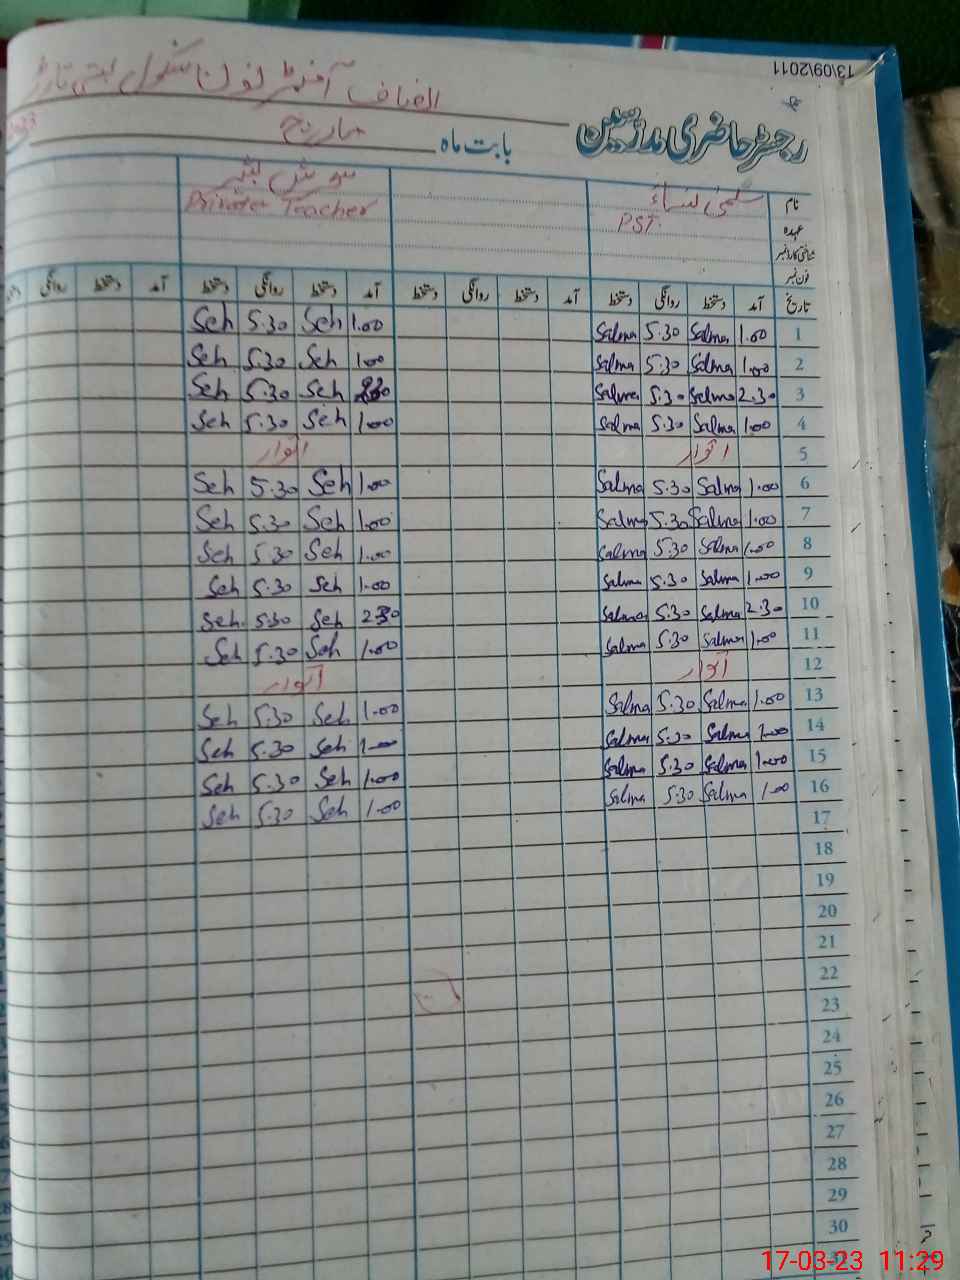 13/09/2011
رجسٹر حاضری مدرسین
الصاف آفٹر نون سکول بستی تارڑ
بابت ماہ مارچ
نام سلمیٰ نساء
عہدہ PST. Private Teacher
شناختی کارڈ نمبر
فون نمبر
تاریخ آمد دستخط روانگی دستخط آمد دستخط روانگی دستخط آمد دستخط روانگی دستخط آمد دستخط روانگی
1 1.00 Salma 5.30 Salma 1.00 Seh 5.30 Seh
2 1.00 Salma 5.30 Salma 1.00 Seh 5.30 Seh
3 2.30 Salma 5.30 Salma 2.30 Seh 5.30 Seh
4 1.00 Salma 5.30 Salma 1.00 Seh 5.30 Seh
5 اتوار اتوار
6 1.00 Salma 5.30 Salma 1.00 Seh 5.30 Seh
7 1.00 Salma 5.30 Salma 1.00 Seh 5.30 Seh
8 1.00 Salma 5.30 Salma 1.00 Seh 5.30 Seh
9 1.00 Salma 5.30 Salma 1.00 Seh 5.30 Seh
10 2.30 Salma 5.30 Salma 2.30 Seh 5.30 Seh
11 1.00 Salma 5.30 Salma 1.00 Seh 5.30 Seh
12 اتوار اتوار
13 1.00 Salma 5.30 Salma 1.00 Seh 5.30 Seh
14 1.00 Salma 5.30 Salma 1.00 Seh 5.30 Seh
15 1.00 Salma 5.30 Salma 1.00 Seh 5.30 Seh
16 1.00 Salma 5.30 Salma 1.00 Seh 5.30 Seh
17
18
19
20
21
22
23
24
25
26
27
28
29
30
17-03-23 11:29